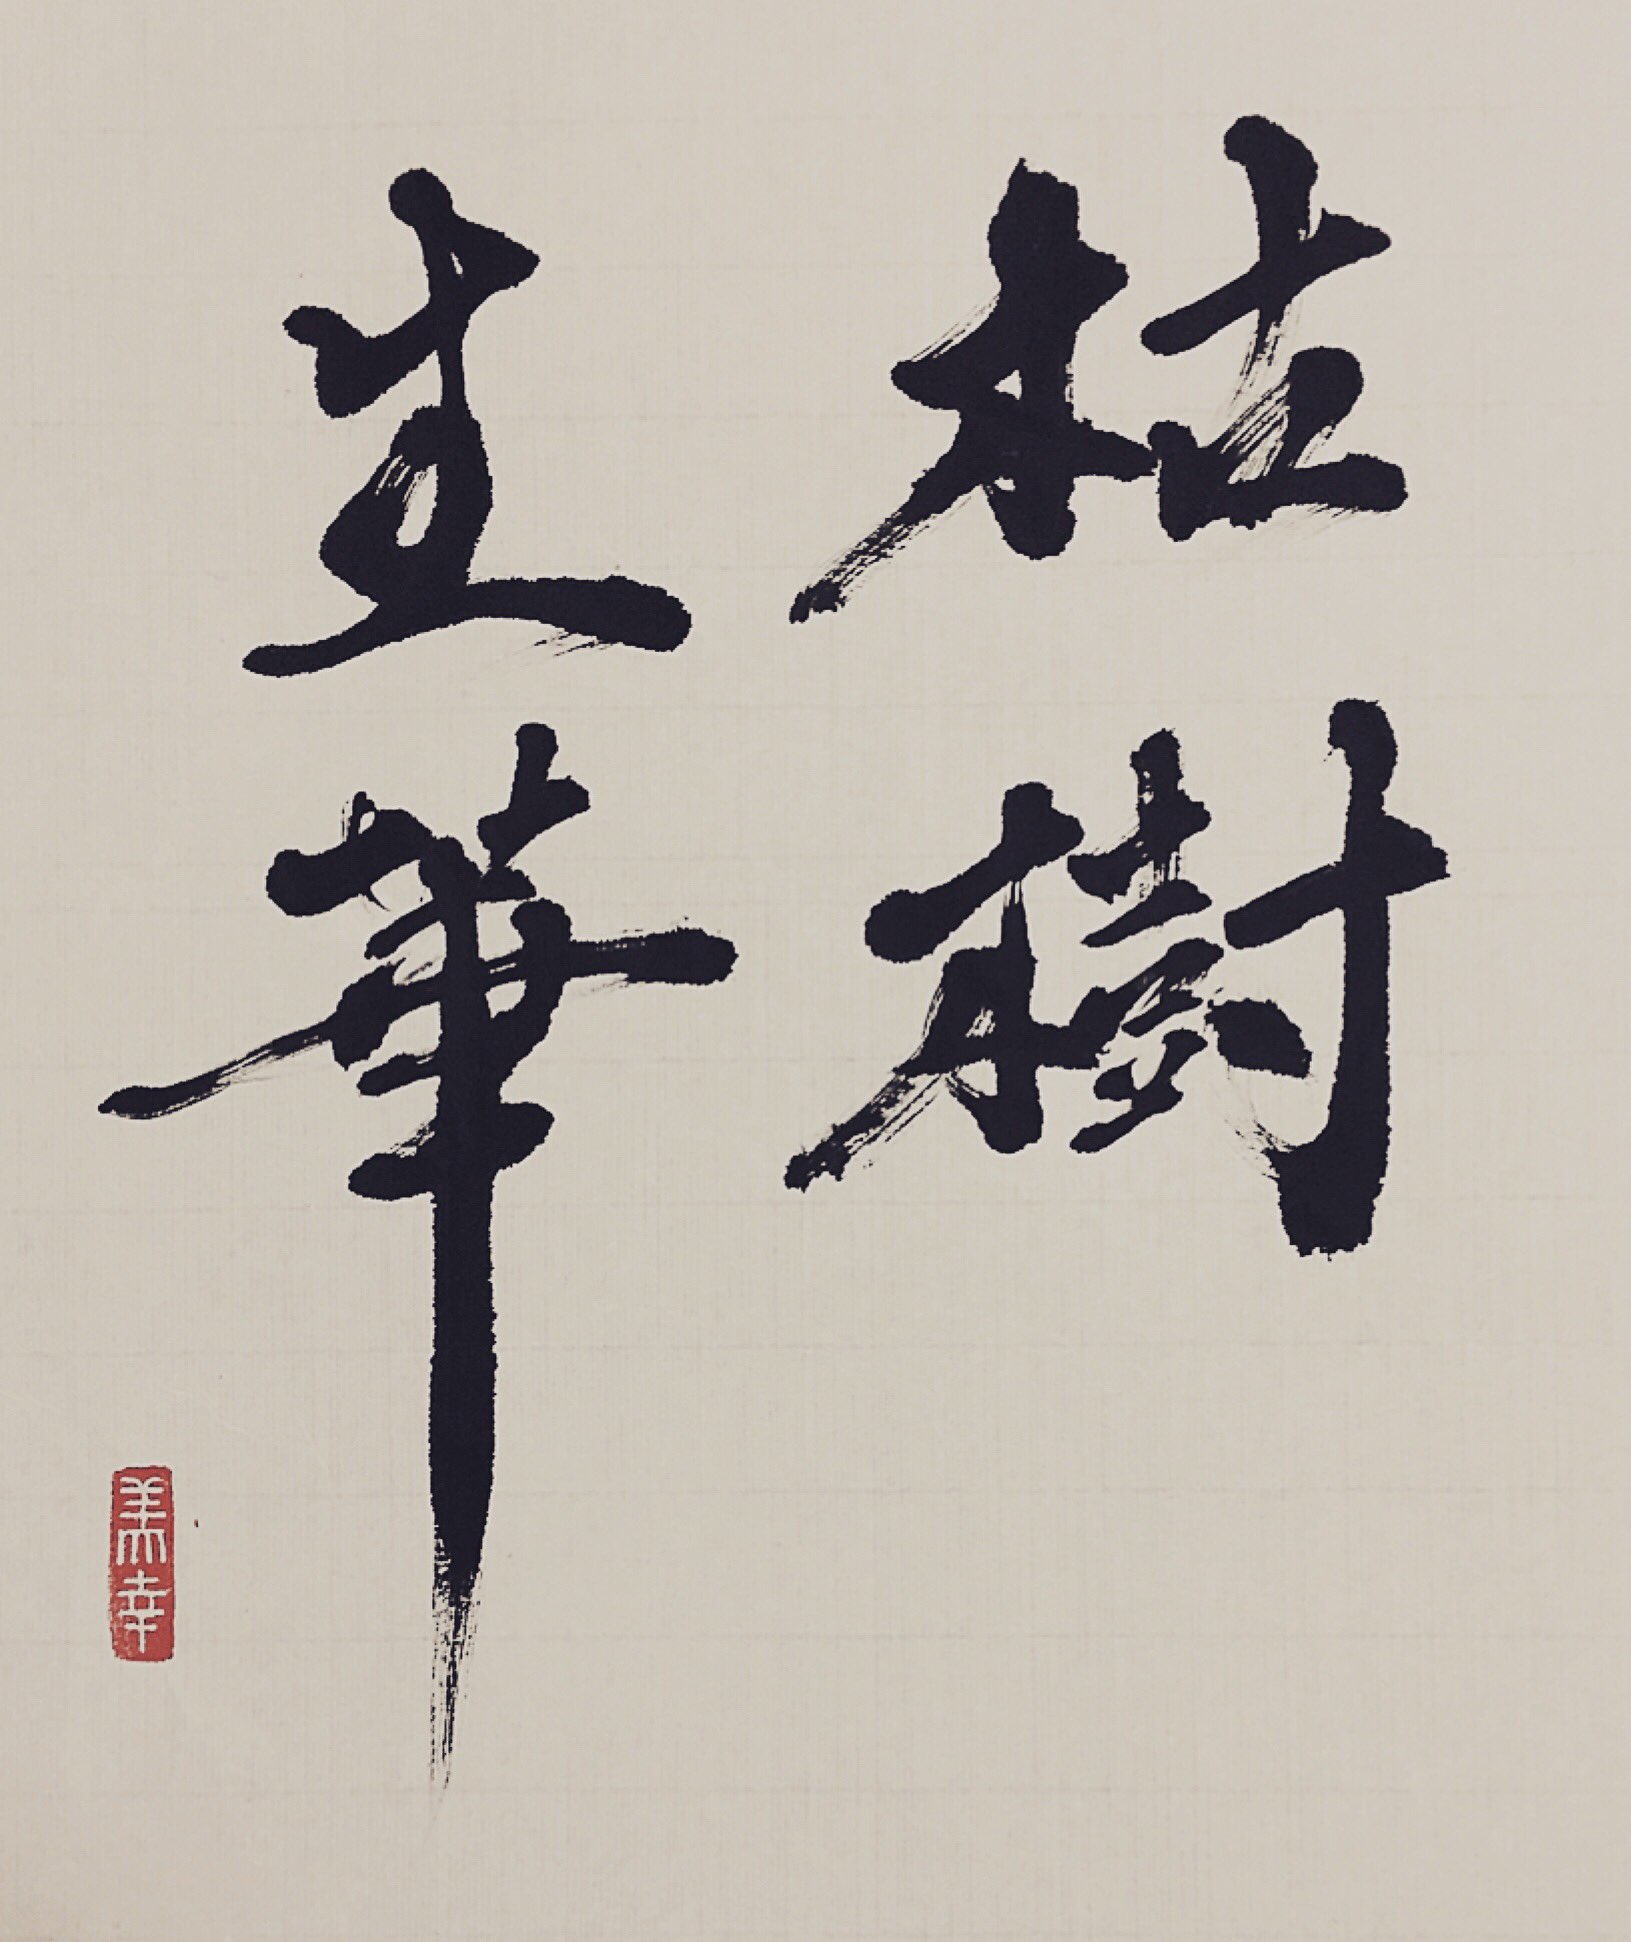 枯樹
生華
美幸